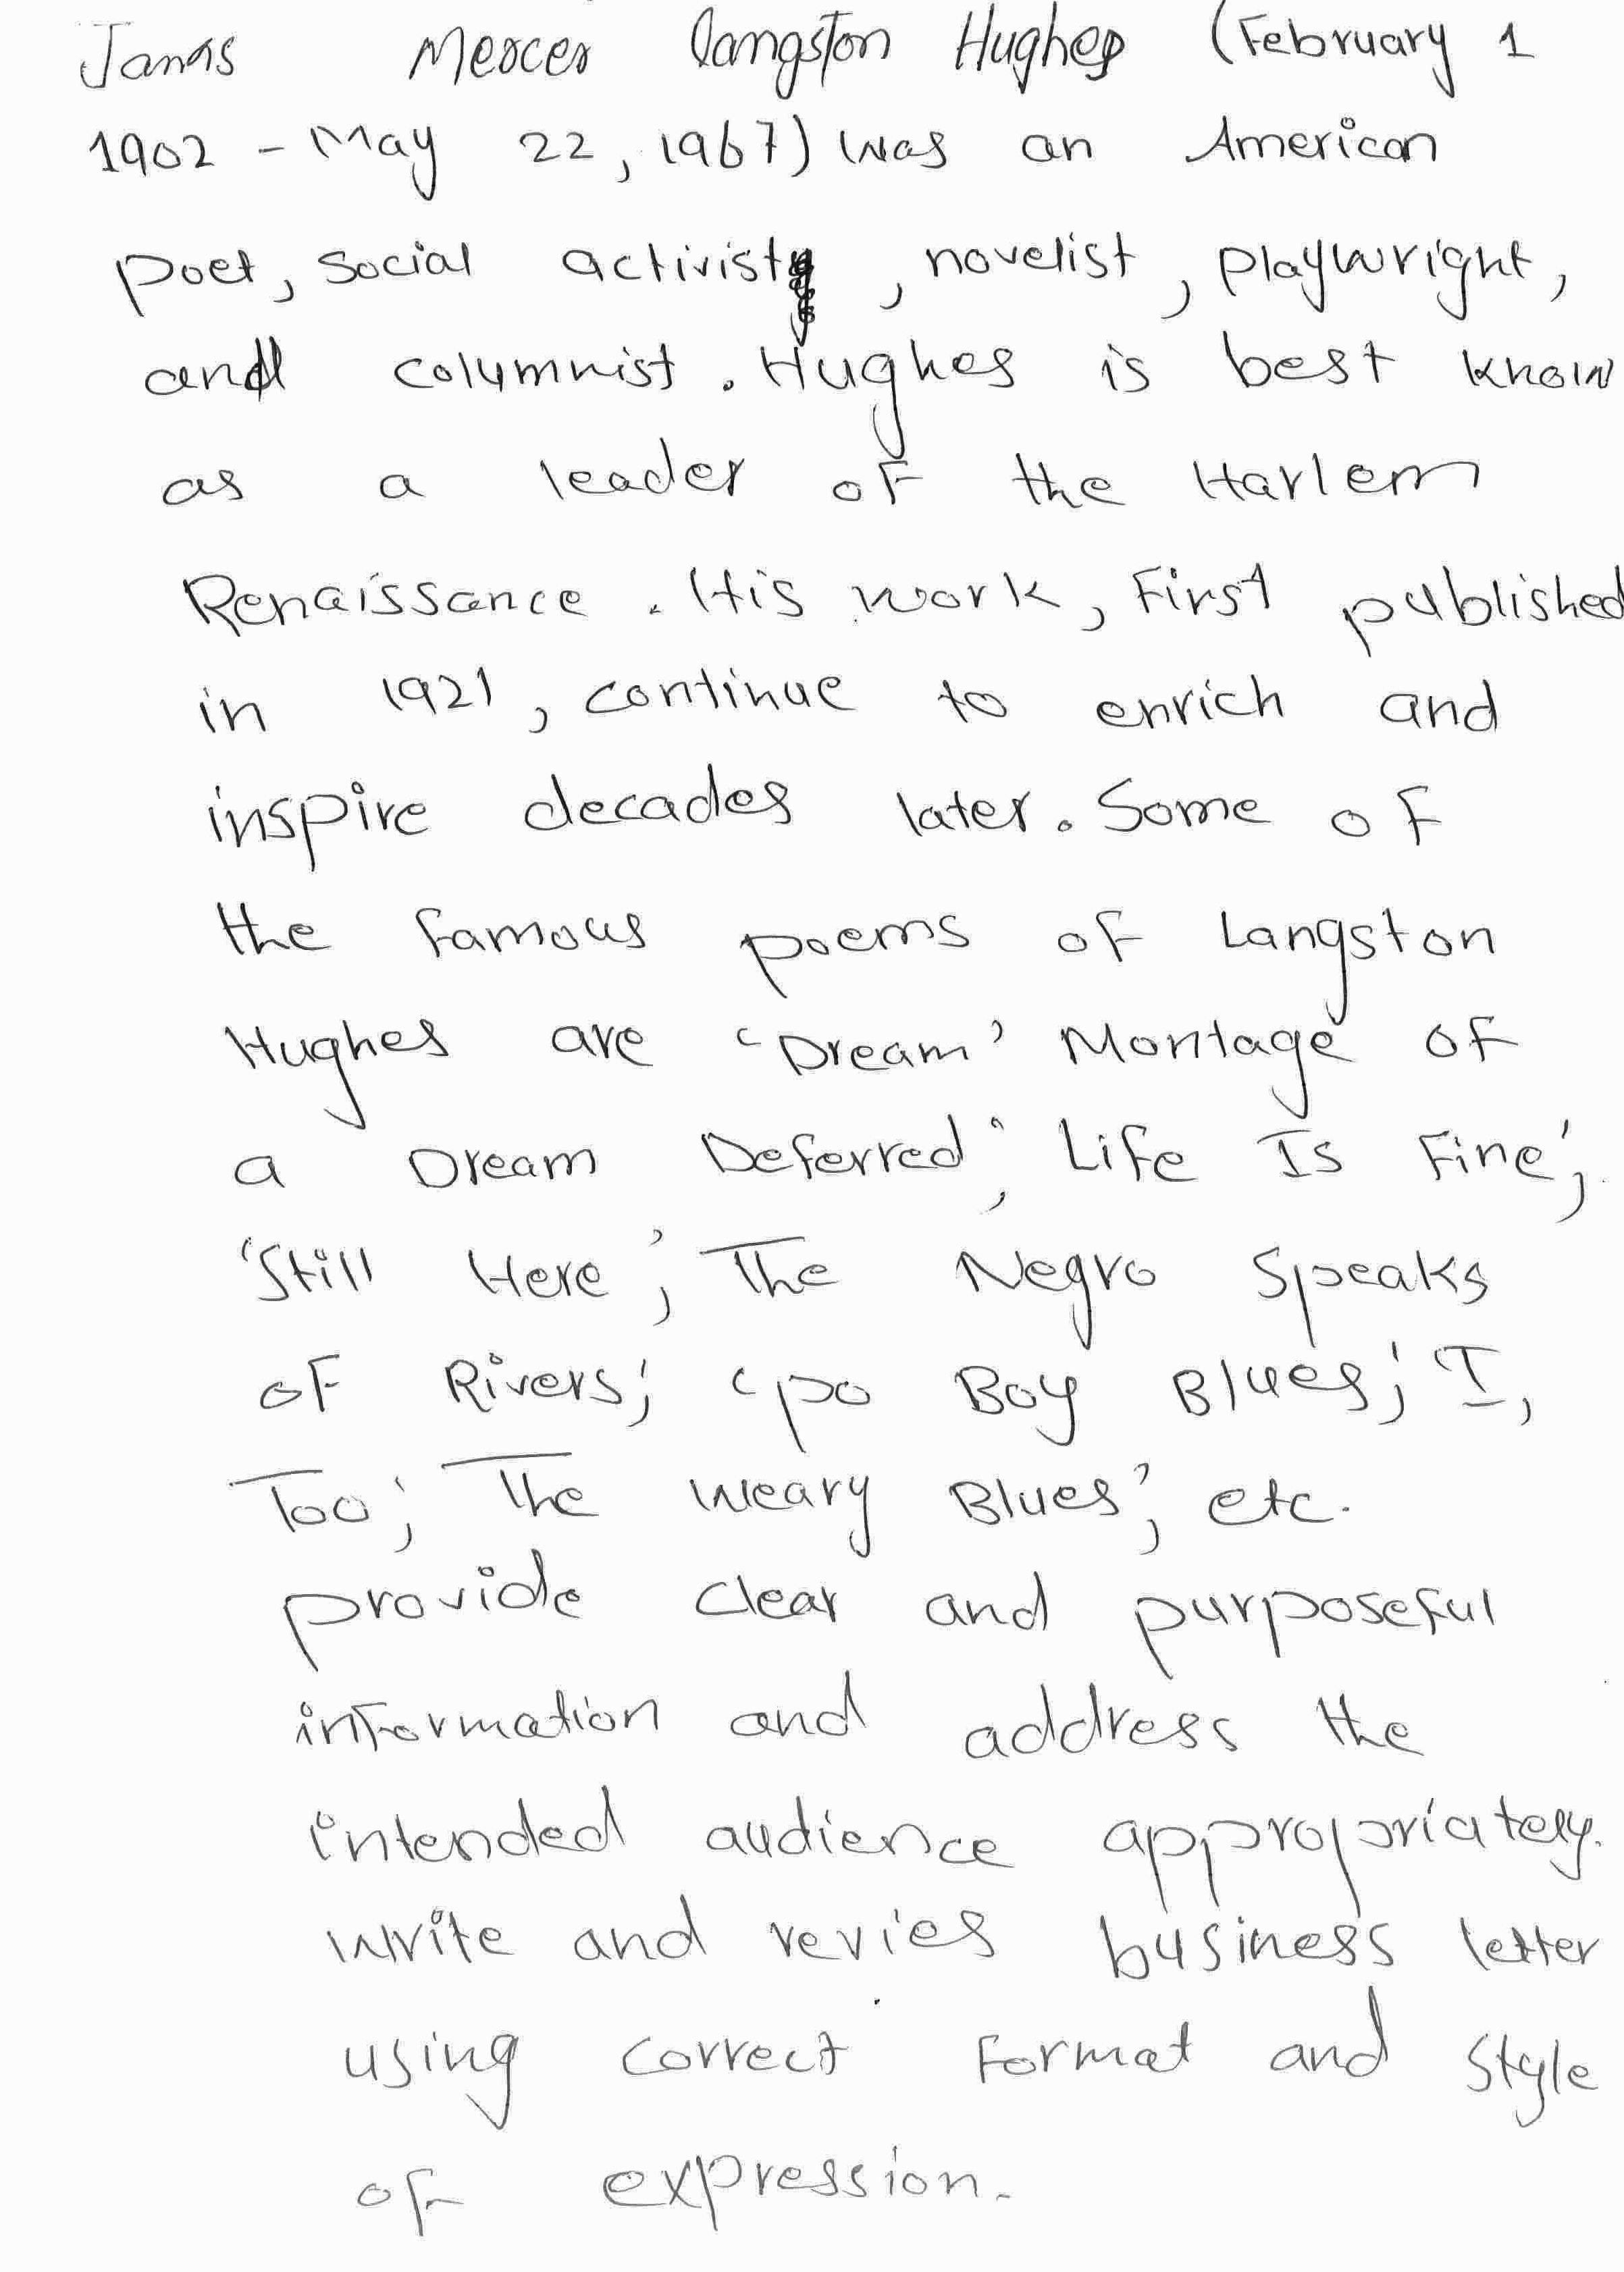 James Mercer Langston Hughes (February 1
1902 - May 22, 1967) was an American
poet, social activist, novelist, playwright,
and columnist. Hughes is best know
as a leader of the Harlem
Renaissance. His work, first published
in 1921, continue to enrich and
inspire decades later. Some of
the famous poems of Langston
Hughes are 'Dream' Montage of
a Dream Deferred', Life Is Fine',
'Still Here', The Negro Speaks
of Rivers', 'po Boy Blues', 'I,
Too', The weary Blues', etc.
provide clear and purposeful
information and address the
intended audience appropriately.
write and revies business letter
using correct format and style
of expression.